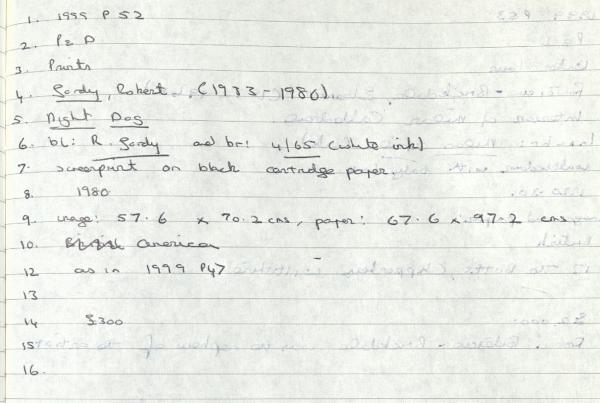 1. 1999 P 52
2. P & D
3. Prints
4. Gordy, Robert (1933 - 1986)
5. Night Dog
6. bl: R. Gordy and br: 4/65 (white ink)
7. screenprint on black cartridge paper
8. 1980
9. image: 57.6 x 70.2 cms, paper: 67.6 x 97.2 cms
10. British American
12 as in 1999 P47
13
14 £300
15
16.